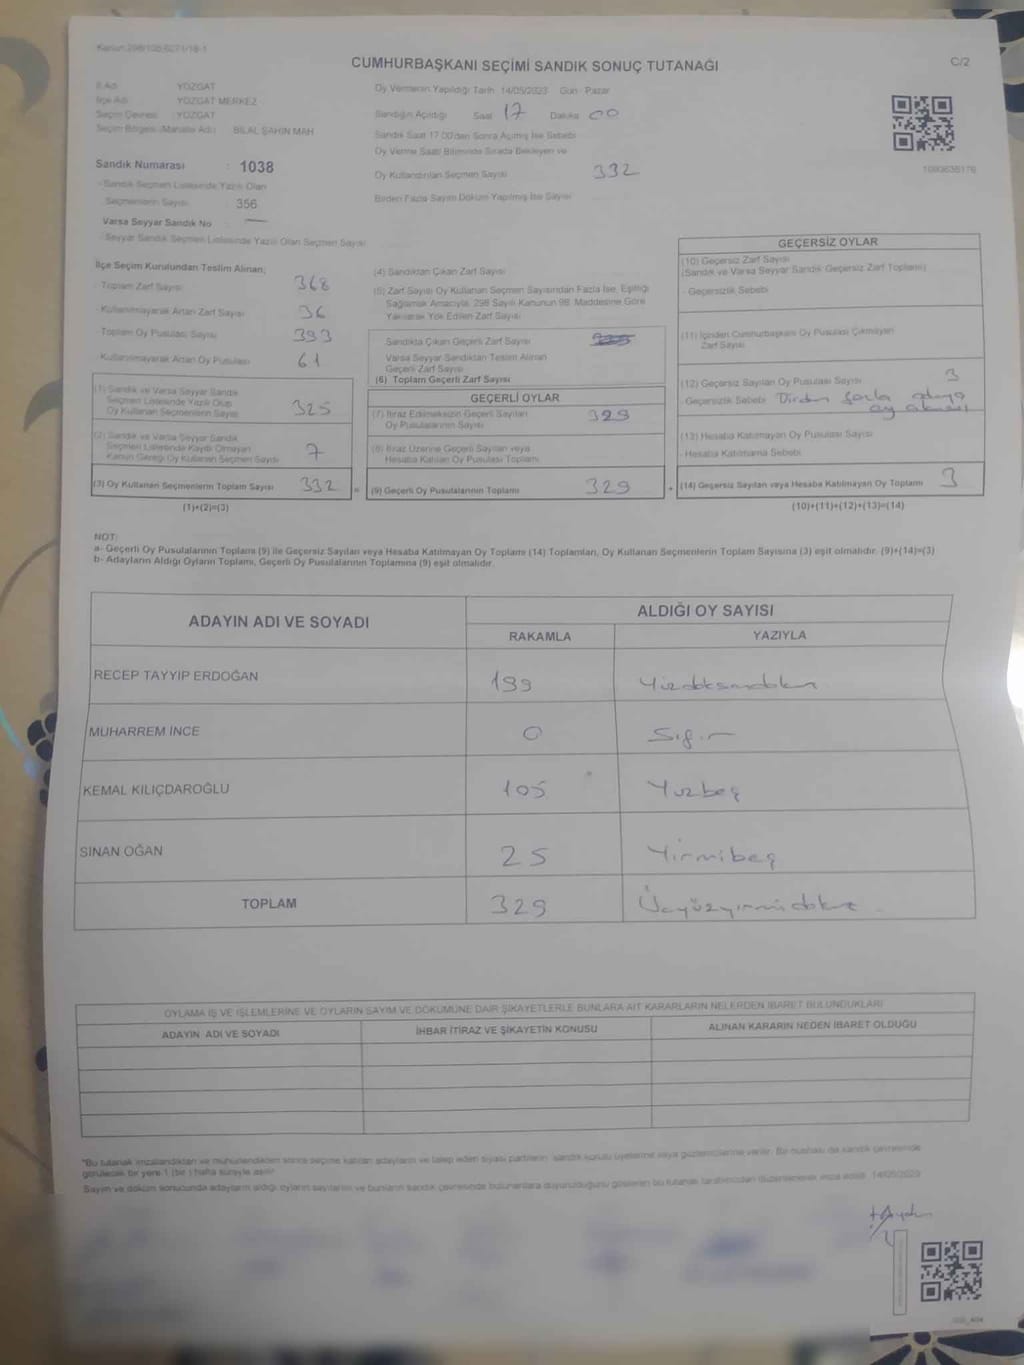 Kanun:298/105,6271/18-1
CUMHURBAŞKANI SEÇİMİ SANDIK SONUÇ TUTANAĞI
C/2
İl Adı : YOZGAT
İlçe Adı : YOZGAT MERKEZ
Seçim Çevresi : YOZGAT
Seçim Bölgesi (Mahalle Adı) : BİLAL ŞAHİN MAH
Sandık Numarası : 1038
- Sandık Seçmen Listesinde Yazılı Olan
Seçmenlerin Sayısı : 356
Varsa Seyyar Sandık No : —
- Seyyar Sandık Seçmen Listesinde Yazılı Olan Seçmen Sayısı
Oy Vermenin Yapıldığı Tarih 14/05/2023 Gün : Pazar
Sandığın Açıldığı Saat 17 Dakika 00
Sandık Saat 17.00'den Sonra Açılmış İse Sebebi
Oy Verme Saati Bitiminde Sırada Bekleyen ve
Oy Kullandırılan Seçmen Sayısı 332
Birden Fazla Sayım Döküm Yapılmış İse Sayısı
İlçe Seçim Kurulundan Teslim Alınan;
- Toplam Zarf Sayısı 368
- Kullanılmayarak Artan Zarf Sayısı 36
- Toplam Oy Pusulası Sayısı 393
- Kullanılmayarak Artan Oy Pusulası 61
(1) Sandık ve Varsa Seyyar Sandık
Seçmen Listesinde Yazılı Olup
Oy Kullanan Seçmenlerin Sayısı 325
(2) Sandık ve Varsa Seyyar Sandık
Seçmen Listesinde Kayıtlı Olmayan
Kanun Gereği Oy Kullanan Seçmen Sayısı 7
(3) Oy Kullanan Seçmenlerin Toplam Sayısı 332 =
(1)+(2)=(3)
(4) Sandıktan Çıkan Zarf Sayısı
(5) Zarf Sayısı Oy Kullanan Seçmen Sayısından Fazla İse, Eşitliği
Sağlamak Amacıyla, 298 Sayılı Kanunun 98. Maddesine Göre
Yakılarak Yok Edilen Zarf Sayısı
Sandıkta Çıkan Geçerli Zarf Sayısı
Varsa Seyyar Sandıktan Teslim Alınan
Geçerli Zarf Sayısı
(6) Toplam Geçerli Zarf Sayısı
GEÇERLİ OYLAR
(7) İtiraz Edilmeksizin Geçerli Sayılan
Oy Pusulalarının Sayısı 329
(8) İtiraz Üzerine Geçerli Sayılan veya
Hesaba Katılan Oy Pusulası Toplamı
(9) Geçerli Oy Pusulalarının Toplamı 329 +
GEÇERSİZ OYLAR
(10) Geçersiz Zarf Sayısı
(Sandık ve Varsa Seyyar Sandık Geçersiz Zarf Toplamı)
- Geçersizlik Sebebi
(11) İçinden Cumhurbaşkanı Oy Pusulası Çıkmayan
Zarf Sayısı
(12) Geçersiz Sayılan Oy Pusulası Sayısı 3
- Geçersizlik Sebebi Birden fazla adaya
oy atması
(13) Hesaba Katılmayan Oy Pusulası Sayısı
- Hesaba Katılmama Sebebi
(14) Geçersiz Sayılan veya Hesaba Katılmayan Oy Toplamı 3
(10)+(11)+(12)+(13)=(14)
NOT:
a- Geçerli Oy Pusulalarının Toplamı (9) ile Geçersiz Sayılan veya Hesaba Katılmayan Oy Toplamı (14) Toplamları, Oy Kullanan Seçmenlerin Toplam Sayısına (3) eşit olmalıdır. (9)+(14)=(3)
b- Adayların Aldığı Oyların Toplamı, Geçerli Oy Pusulalarının Toplamına (9) eşit olmalıdır.
ADAYIN ADI VE SOYADI
ALDIĞI OY SAYISI
RAKAMLA YAZIYLA
RECEP TAYYİP ERDOĞAN 199 Yüzdoksandokuz
MUHARREM İNCE 0 Sıfır
KEMAL KILIÇDAROĞLU 105 Yüzbeş
SİNAN OĞAN 25 Yirmibeş
TOPLAM 329 Üçyüzyirmidokuz
OYLAMA İŞ VE İŞLEMLERİNE VE OYLARIN SAYIM VE DÖKÜMÜNE DAİR ŞİKAYETLERLE BUNLARA AİT KARARLARIN NELERDEN İBARET BULUNDUKLARI
ADAYIN ADI VE SOYADI İHBAR İTİRAZ VE ŞİKAYETİN KONUSU ALINAN KARARIN NEDEN İBARET OLDUĞU
*Bu tutanak imzalandıktan ve mühürlendikten sonra seçime katılan adayların ve talep eden siyasi partilerin sandık kurulu üyelerine veya gözlemcilerine verilir. Bir nüshası da sandık çevresinde
görülecek bir yere 1 (bir ) hafta süreyle asılır.
Sayım ve döküm sonucunda adayların aldığı oyların sayılarını ve bunların sandık çevresinde bulunanlara duyurulduğunu gösteren bu tutanak tarafımızdan düzenlenerek imza edildi. 14/05/2023